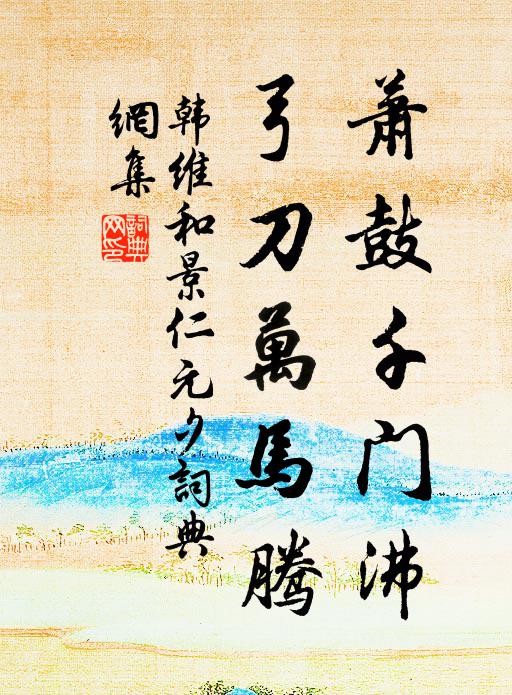 萧鼓千门沸
弓刀萬馬腾
韩维和景仁元夕詞典
網集
詞典
网印